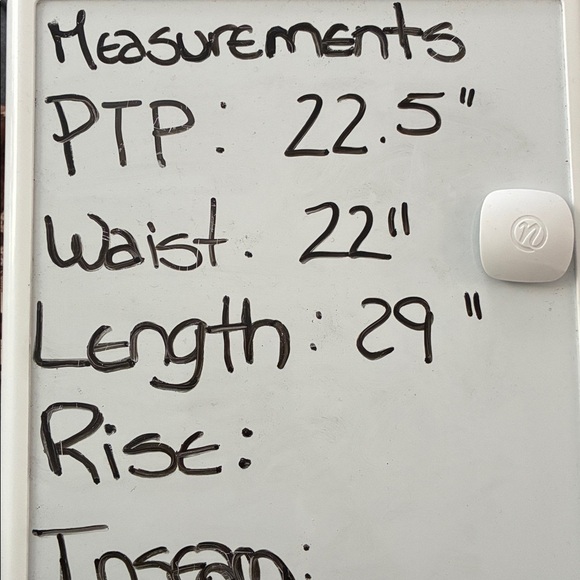 Measurements
PTP: 22.5"
Waist: 22"
Length: 29"
Rise:
Inseam:
n